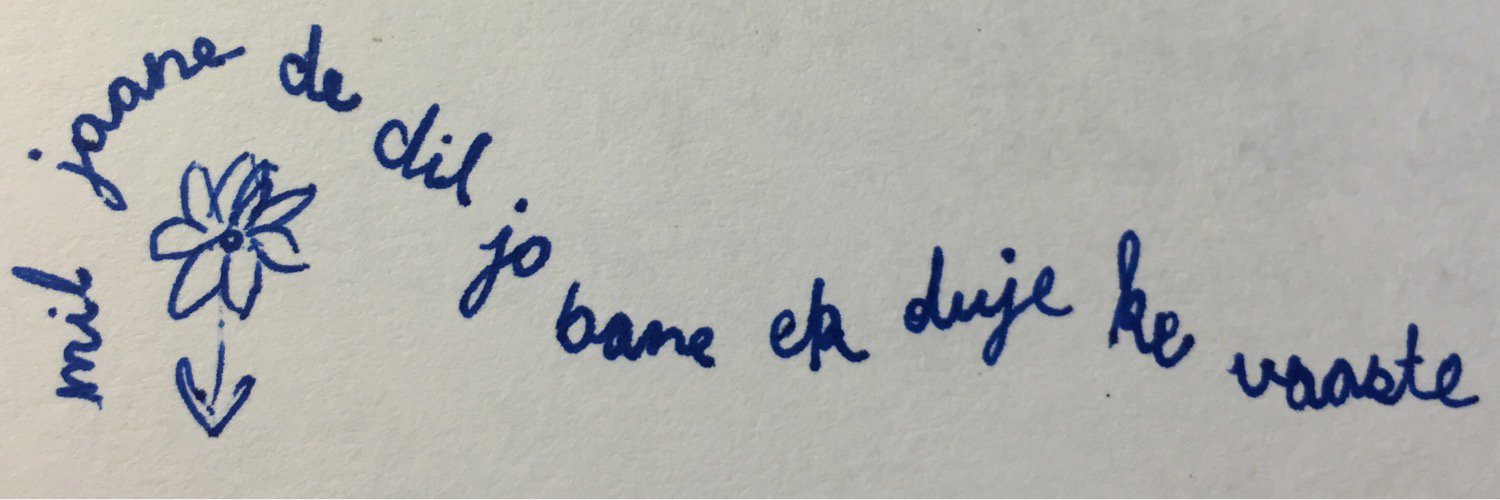 mil jaane de dil jo bane ek duje ke vaaste